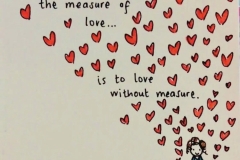 the measure of
love...
is to love
without measure.